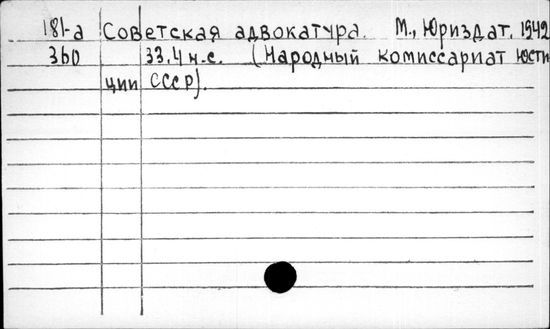 181-а Советская адвокатура. М., Юриздат, 1942
360 33,4 н.с. (Народный комиссариат юсти
ции СССР).